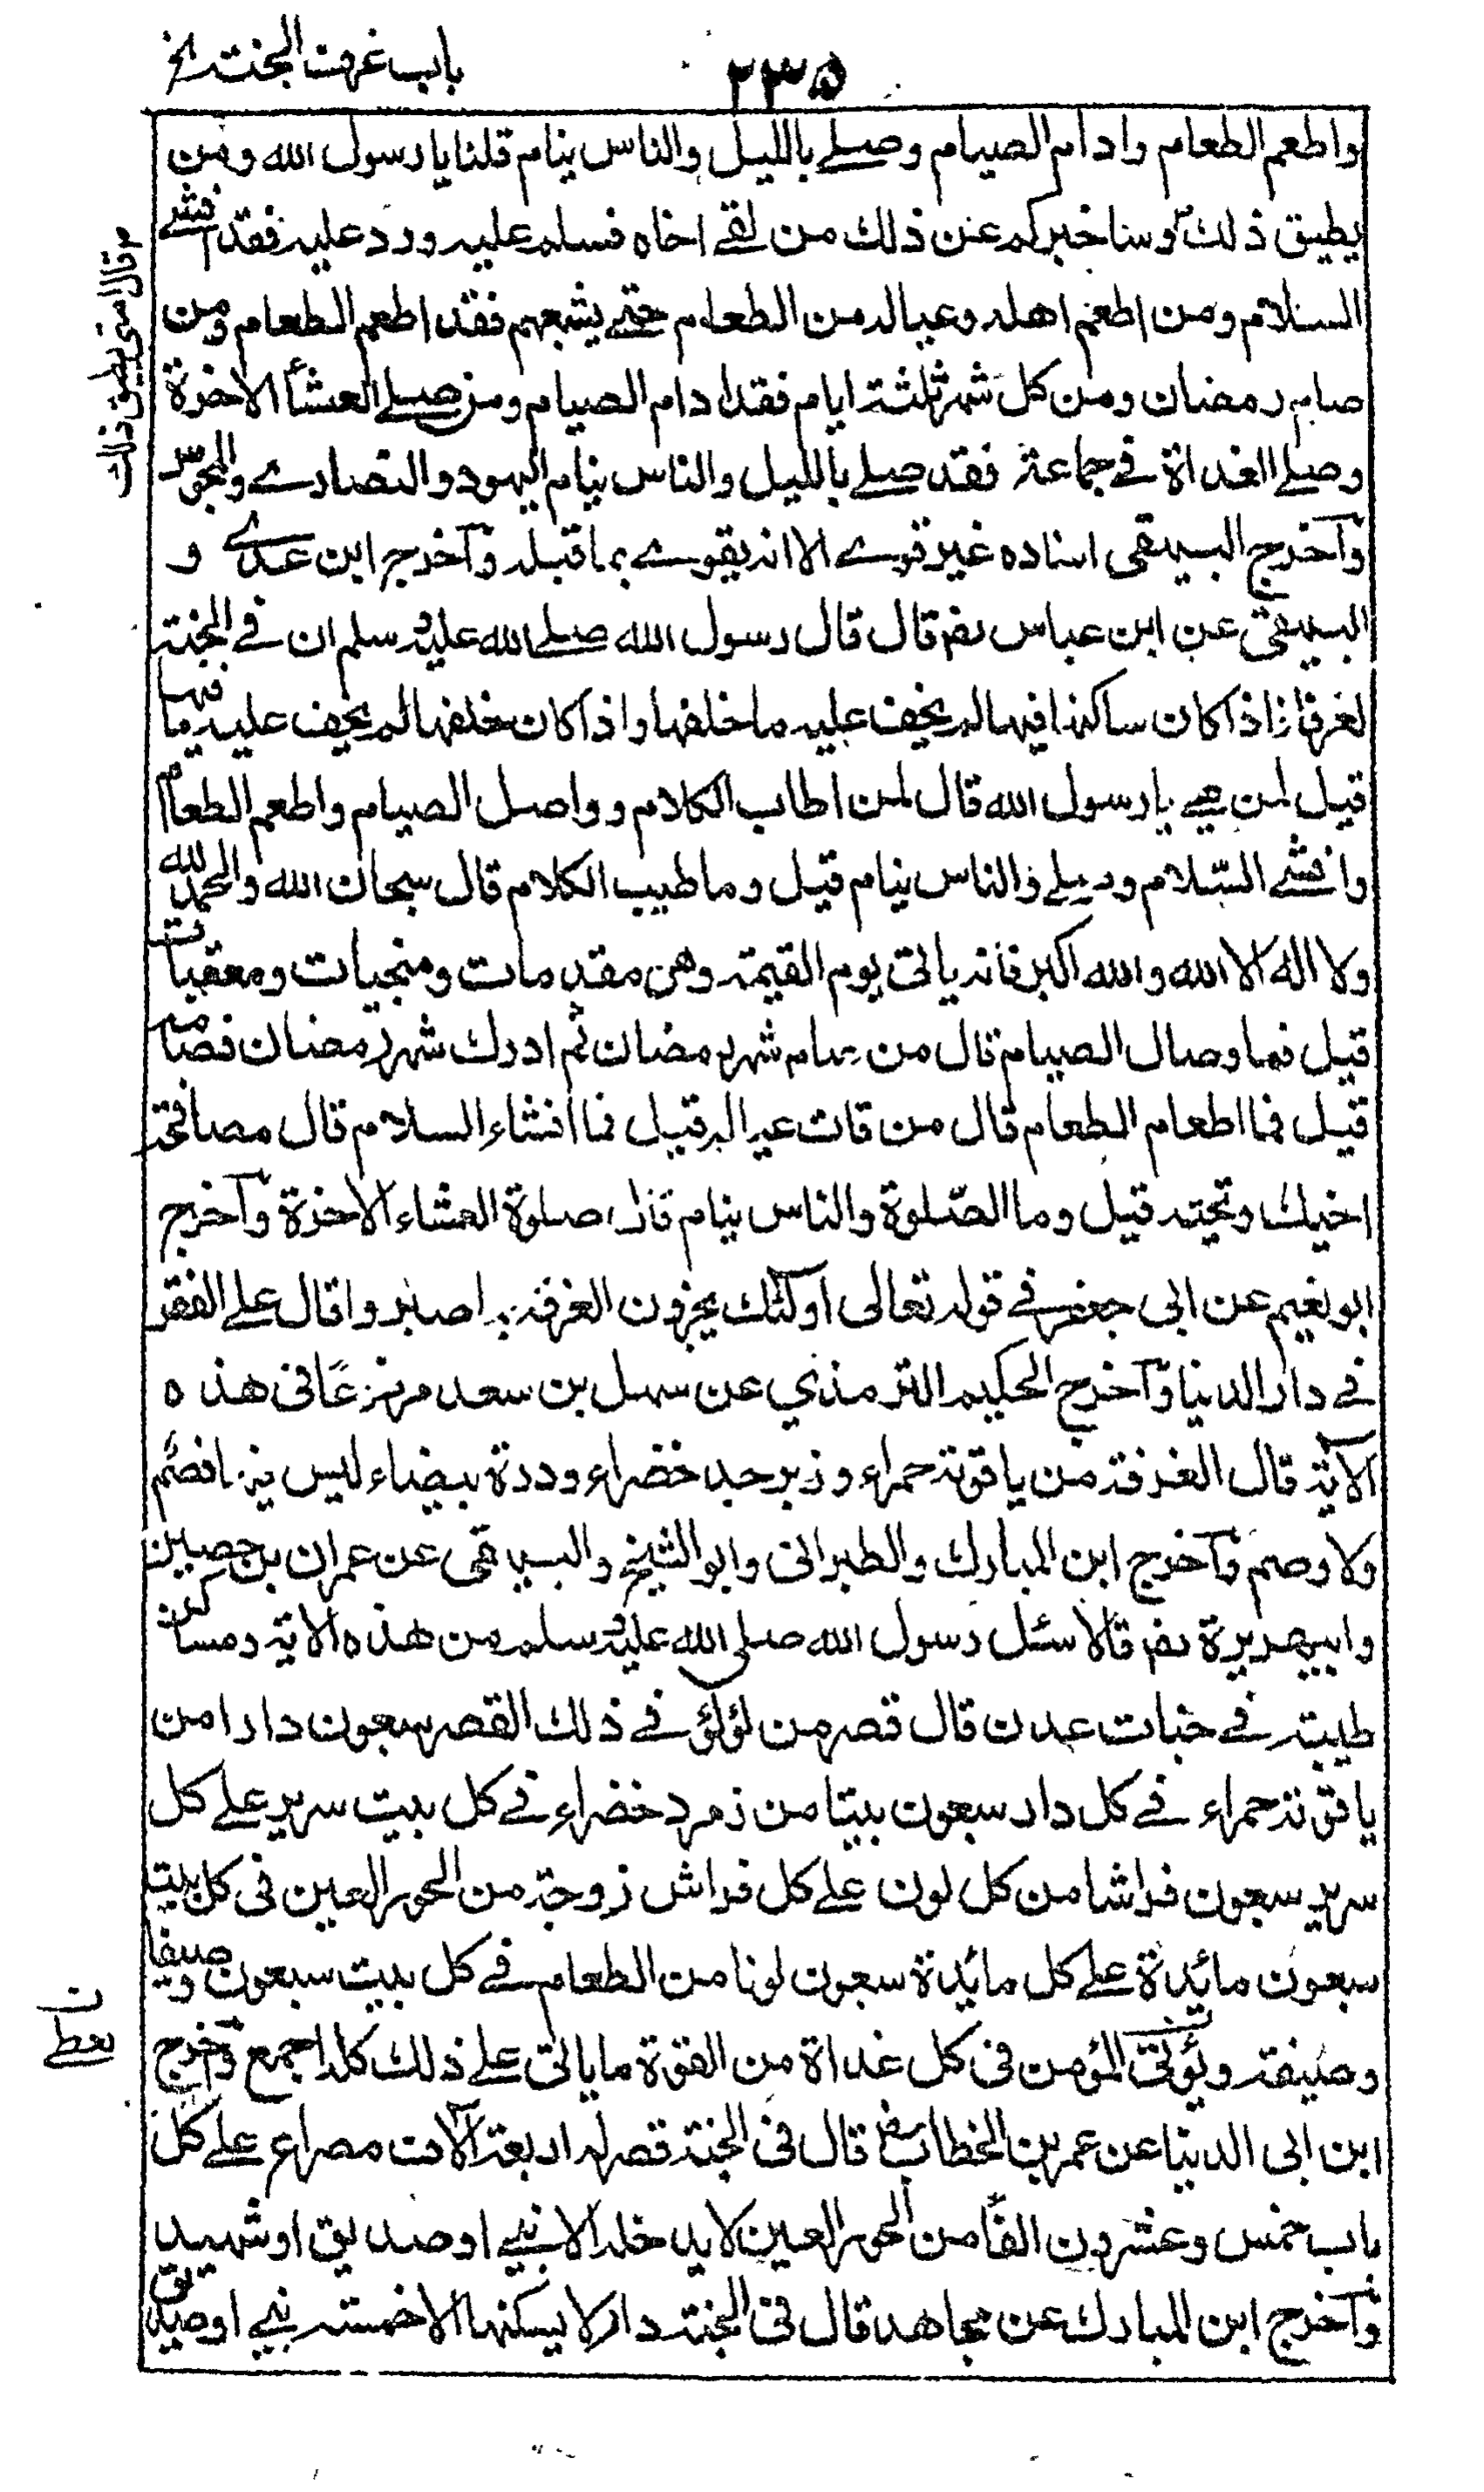 باب غرف الجنة الخ
٢٣٥
واطعم الطعام وادام الصيام وصلے بالليل والناس نيام قلنا يا رسول الله ومن
يطيق ذلك وساخبركم عن ذلك من لقے اخاه فسلم عليه ورد عليه فقد افشے
قال امتي يطيق ذلك
السلام ومن اطعم اهله وعياله من الطعام حتے يشبعهم فقد اطعم الطعام ومن
صام رمضان ومن كل شهر ثلثة ايام فقد ادام الصيام ومن صلے العشأ الاخرة
وصلے الغداة فے جماعة فقد صلے بالليل والناس نيام اليهود والنصارے والمجوس
وآخرج البيهقى اسناده غير قوے الا انه يقوے بما قبله وآخرج ابن عدے و
البيهقى عن ابن عباس رضم قال قال رسول الله صلے الله عليه وسلم ان فے الجنة
لغرفا اذا كان ساكنها فيها لم يخف عليه ما خلفها واذا كان خلفها لم يخف عليه ما فيها
قيل لمن هے يا رسول الله قال لمن اطاب الكلام وواصل الصيام واطعم الطعام
وافشے السّلام وصلے والناس نيام قيل وما طيب الكلام قال سبحان الله والحمد لله
ولا اله الا الله والله اكبر فانه ياتى يوم القيمة وهن مقدمات ومنجيات ومعقبات
قيل فما وصال الصيام قال من صام شهر رمضان ثم ادرك شهر رمضان فصامه
قيل فما اطعام الطعام قال من قات عياله قيل فما افشاء السلام قال مصافحة
اخيك وتحيته قيل وما الصّلوة والناس نيام قال صلوة العشاء الاخرة وآخرج
ابو نعيم عن ابى جعفر فے قوله تعالى اولئك يجزون الغرفة بما صبروا قال علے الفقر
فے دار الدنيا وآخرج الحكيم الترمذي عن سهل بن سعد مرفوعًا فى هذه
الآية قال الغرفة من ياقوتة حمراء وزبرجد خضراء ودرة بيضاء ليس فيها فصم
ولا وصم وآخرج ابن المبارك والطبرانى وابو الشيخ والبيهقى عن عمران بن حصين
وابيهريرة رضم قالا سئل رسول الله صلى الله عليه وسلم من هذه الاية ومساكن
طيبة فے جنات عدن قال قصر من لؤلؤ فے ذلك القصر سبعون دارا من
ياقوتة حمراء فے كل دار سبعون بيتا من زمرد خضراء فے كل بيت سرير علے كل
سرير سبعون فراشا من كل لون علے كل فراش زوجة من الحور العين فى كل بيت
سبعون مائدة علے كل مائدة سبعون لونا من الطعام فے كل بيت سبعون وصيفا
وصيفة ويؤتى المؤمن فى كل غداة من القوة ما ياتى علے ذلك كله اجمع وآخرج
ن
يعط
ابن ابى الدنيا عن عمر بن الخطاب رضم قال فى الجنة قصر له اربعة آلاف مصراع علے كل
باب خمس وعشرون الفًا من الحور العين لا يدخله الا نبيے او صديق او شهيد
وآخرج ابن المبارك عن مجاهد قال فى الجنة دار لا يسكنها الا خمسة نبيے او صديق